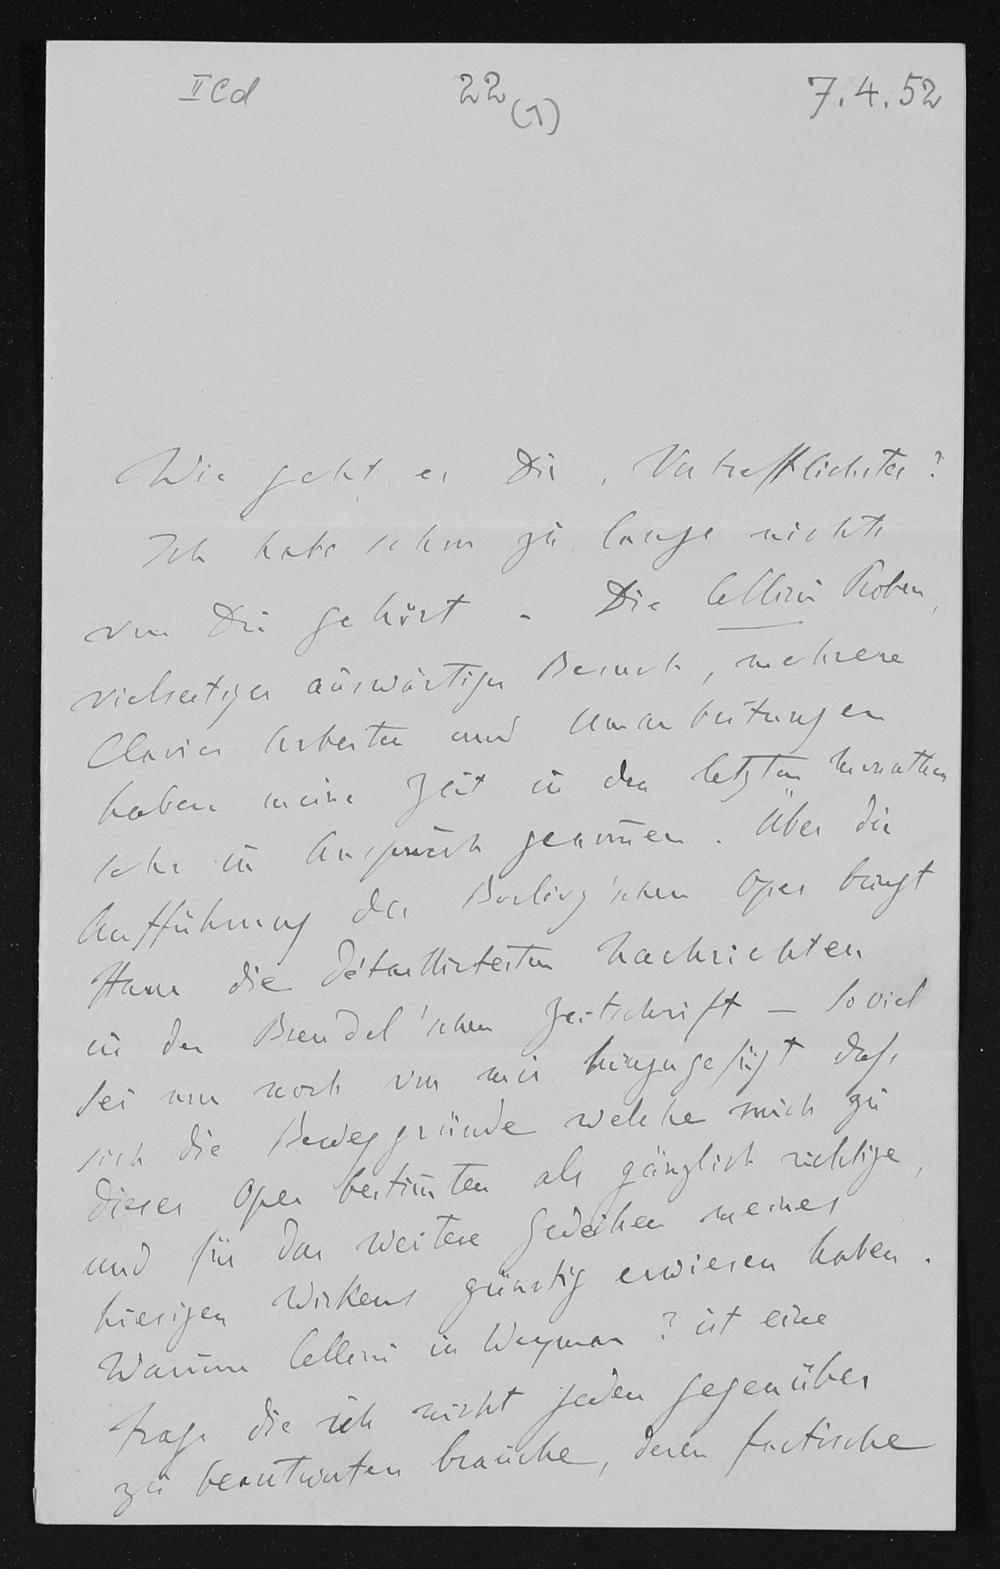 II Cd 22 (1) 7.4.52
Wie geht es Dir, Vortrefflichster?
Ich habe schon zu lange nichts
von Dir gehört. Die Cellini Proben,
vielseitiger auswärtiger Besuch, mehrere
Clavier Arbeiten und Umarbeitungen
haben meine Zeit in den letzten Monathen
sehr in Anspruch genom̄en. Über die
Aufführung der Berlioz'schen Oper bringt
die détaillirtesten Nachrichten
in der Brendel'schen Zeitschrift — Soviel
sei nur noch von mir hinzugefügt dass
sich die Beweggründe welche mich zu
dieser Oper bestim̄ten als gänzlich richtige,
und für das weitere Gedeihen meines
hiesigen Wirkens günstig erwiesen haben.
Warum Cellini in Weymar? ist eine
Frage die ich nicht jeden gegenüber
zu beantworten brauche, deren factische